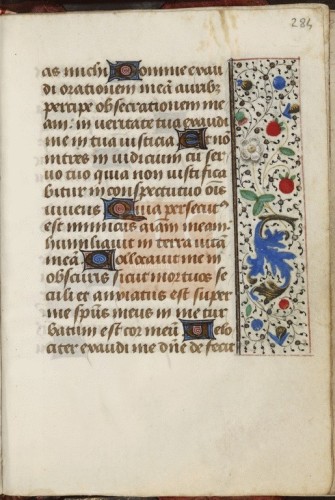 284
as michi Domine exau
di orationem meā auribꝫ
percipe obsecrationem me
am: in veritate tua exaudi
me in tua iusticia Et nō
intres in iudicium cū ser
vo tuo quia non iustifica
bitur in conspectu tuo oīs
vivens Quia persecutꝰ
est inimicus aīam meam
humiliavit in terra vitā
meā Collocavit me in
obscuris sicut mortuos se
culi et anxiatus est super
me spūs meus in me tur
batum est cor meū Velo
citer exaudi me dn̄e defecit